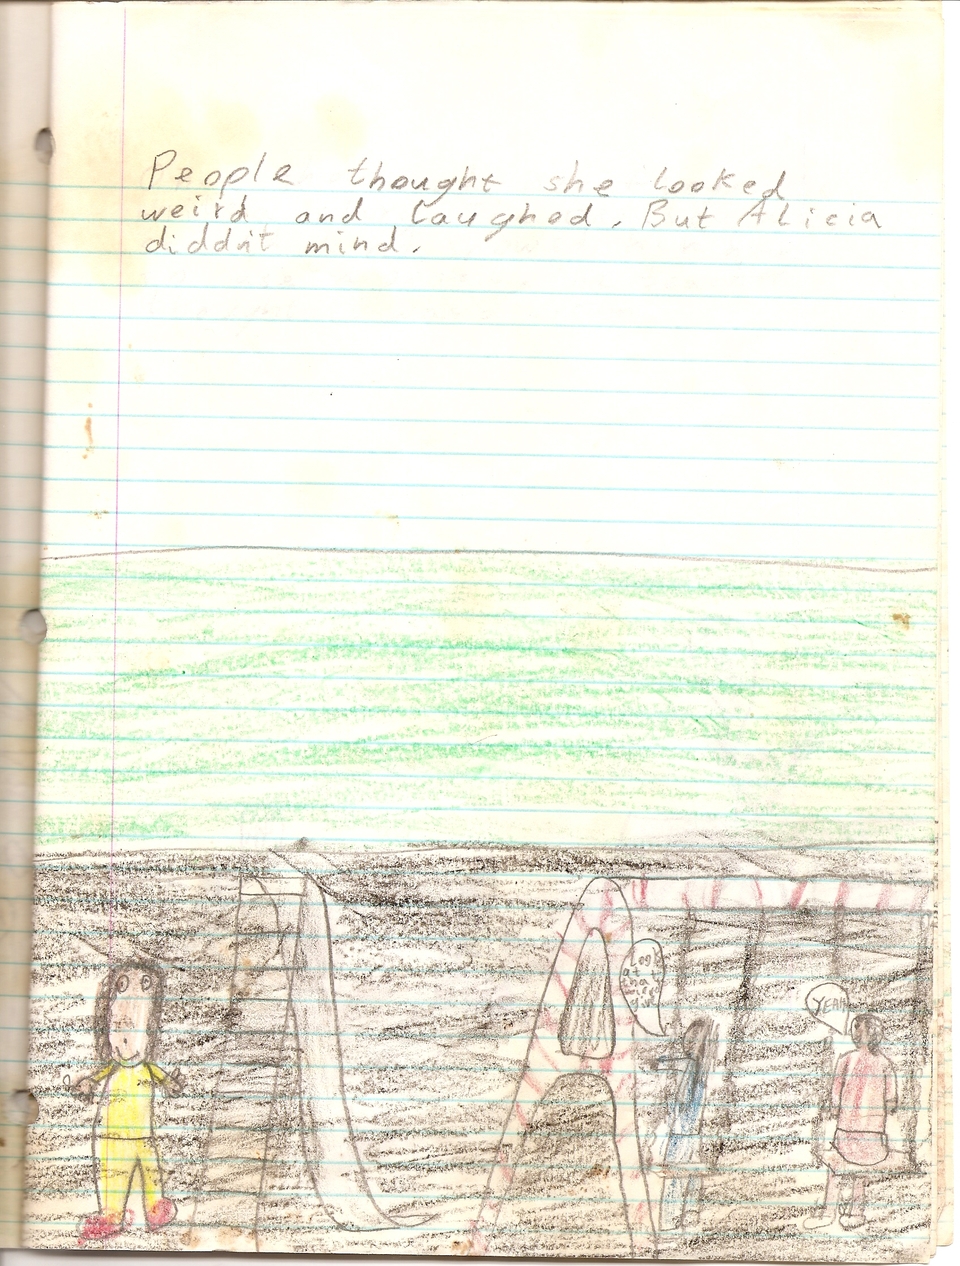 People thought she looked
weird and laughed. But Alicia
diddn't mind.
Look
at
that
weird
girl
YEAH